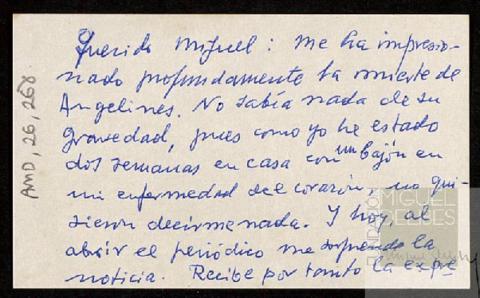 Querido Miguel: me ha impresio-
nado profundamente la muerte de
Angelines. No sabía nada de su
gravedad, pues como yo he estado
dos semanas en casa con un bajón en
mi enfermedad del corazón, no qui-
sieron decirme nada. Y hoy, al
abrir el periódico me sorprende la
noticia. Recibe por tanto la expre
AMD, 26, 268
FUNDACIÓN
MIGUEL
DELIBES